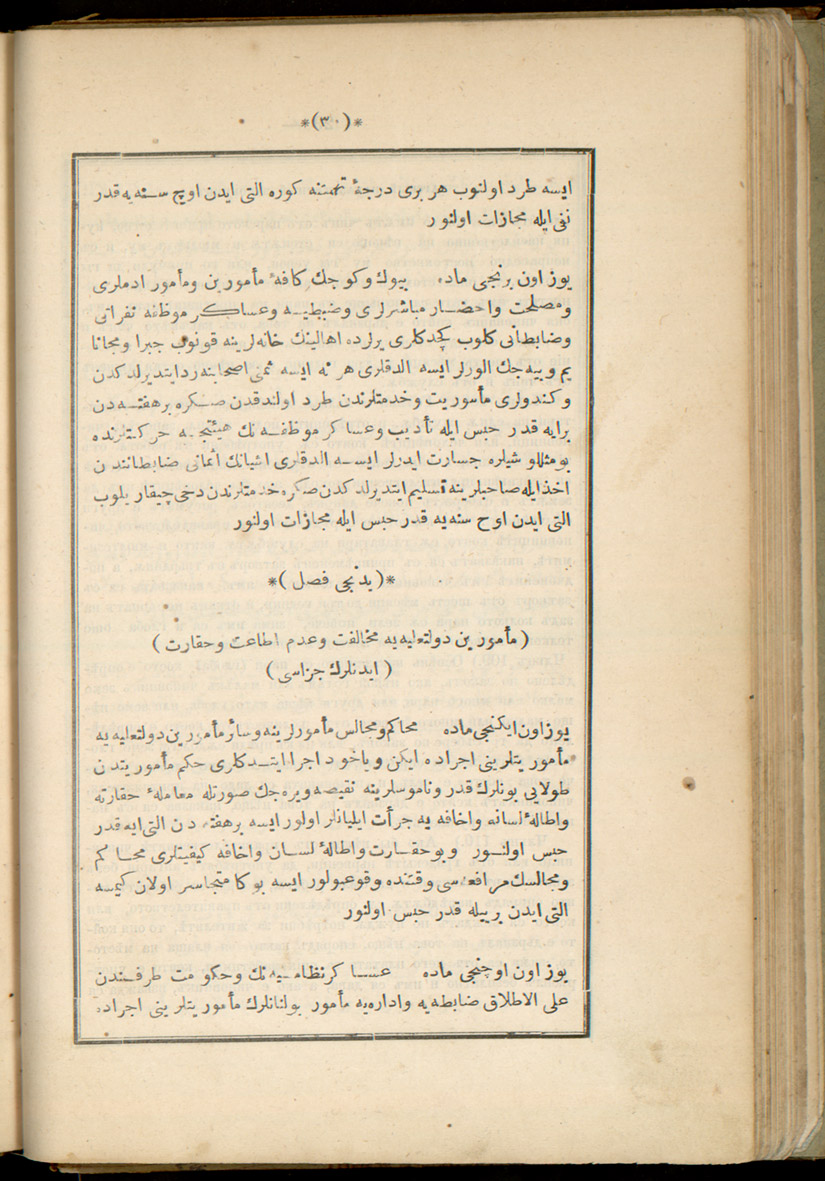 *(٣٠)*
ايسه طرد اولنوب هر برى درجۀ تهمتنه كوره التى ايدن اوچ سنه يه قدر
نفى ايله مجازات اولنور
يوز اون برنجى ماده بيوك وكوجك كافۀ مأمورين ومأمور ادملرى
ومصلحت واحضار مباشرلرى وضبطيه وعساكر موظفه نفراتى
وضابطانى كلوب كچدكلرى يرلرده اهالينك خانه لرينه قونوب جبرا ومجانا
يم وييه جك الورلر ايسه الدقلرى هر نه ايسه ثمنى اصحابنه رد ايتديرلدكدن
وكندولرى مأموريت وخدمتلرندن طرد اولندقدن صكره بر هفته دن
بر ايه قدر حبس ايله تأديب وعساكر موظفه نك هيئتجه حركتلرنده
بو مثللو شيلره جسارت ايدرلر ايسه الدقلرى اشيانك اثمانى ضابطانندن
اخذ ايله صاحبلرينه تسليم ايتديرلدكدن صكره خدمتلرندن دخى چيقاريلوب
التى ايدن اوچ سنه يه قدر حبس ايله مجازات اولنور
*( يدنجى فصل )*
( مأمورين دولتعليه يه مخالفت وعدم اطاعت وحقارت )
( ايدنلرك جزاسى )
يوز اون ايكنجى ماده محاكم ومجالس مأمورلرينه وسائر مأمورين دولتعليه يه
مأموريتلرينى اجراده ايكن وياخود اجرا ايتدكلرى حكم مأموريتدن
طولايى بونلرك قدر وناموسلرينه نقيصه ويره جك صورتله معاملۀ حقارته
واطالۀ لسانه واخافه يه جرأت ايليانلر اولور ايسه بر هفته دن التى ايه قدر
حبس اولنور وبو حقارت واطالۀ لسان واخافه كيفيتلرى محاكم
ومجالسك مرافعه سى وقتنده وقوعبولور ايسه بوكا متجاسر اولان كيمسه
التى ايدن بر ييله قدر حبس اولنور
يوز اون اوچنجى ماده عساكر نظاميه نك وحكومت طرفندن
على الاطلاق ضابطه يه واداره يه مأمور بولنانلرك مأموريتلرينى اجراده